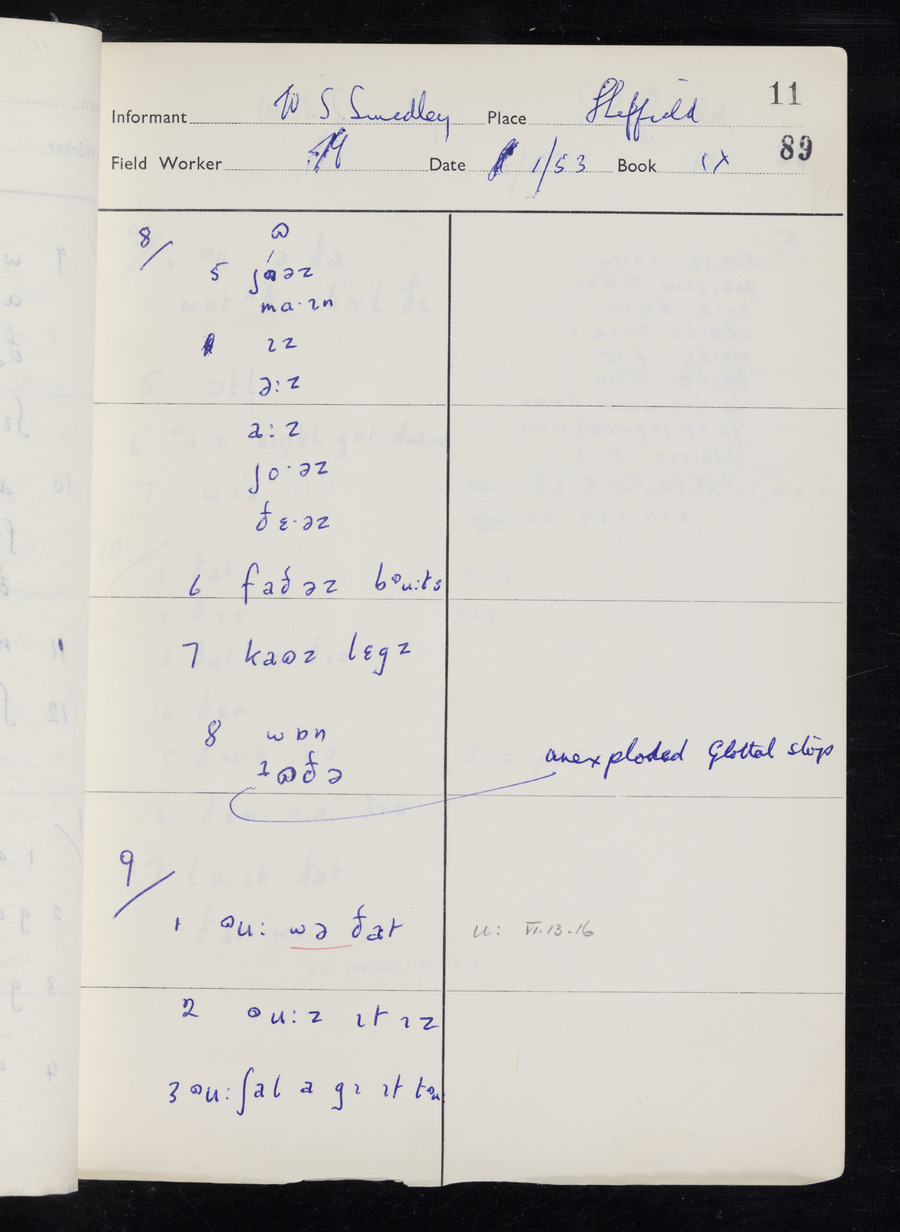 11
Informant W S Smedley Place Sheffield
89
Field Worker Date 1/53 Book IX
8/
ɷ
5 ʃɑəz
ma·ɪn
ɪz
ə:z
a:z
ʃo·əz
ðɛ·əz
6 faðəz bᶷu:ts
7 kaɷz lɛgz
8 wɒn
ɪɷðə
unexploded glottal stops
9/
1 ᶷu: wə ðat u: VI.13.16
2 ᶷu:z ɪt ɪz
3 ᶷu: ʃal a gɪ ɪt tᶷu